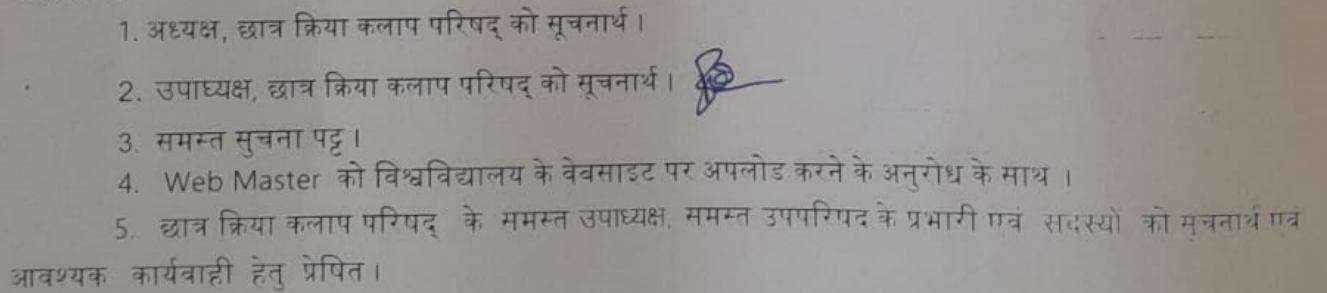 1. अध्यक्ष, छात्र क्रिया कलाप परिषद् को सूचनार्थ।
2. उपाघ्यक्ष, छात्र क्रिया कलाप परिषद् को सूचनार्थ।
3. समस्त सुचना पट्ट।
4. Web Master को विश्वविद्यालय के वेबसाइट पर अपलोड करने के अनुरोध के साथ ।
5. छात्र क्रिया कलाप परिषद् के समस्त उपाध्यक्ष, समस्त उपपरिषद के प्रभारी एवं सदस्यों को सूचनार्थ एवं
आवश्यक कार्यवाही हेतु प्रेषित।